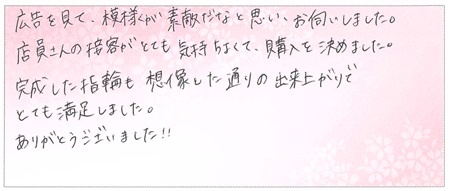 広告を見て、模様が素敵だなと思い、お伺いしました。
店員さんの接客がとても気持ちよくて、購入を決めました。
完成した指輪も想像した通りの出来上がりで
とても満足しました。
ありがとうございました!!